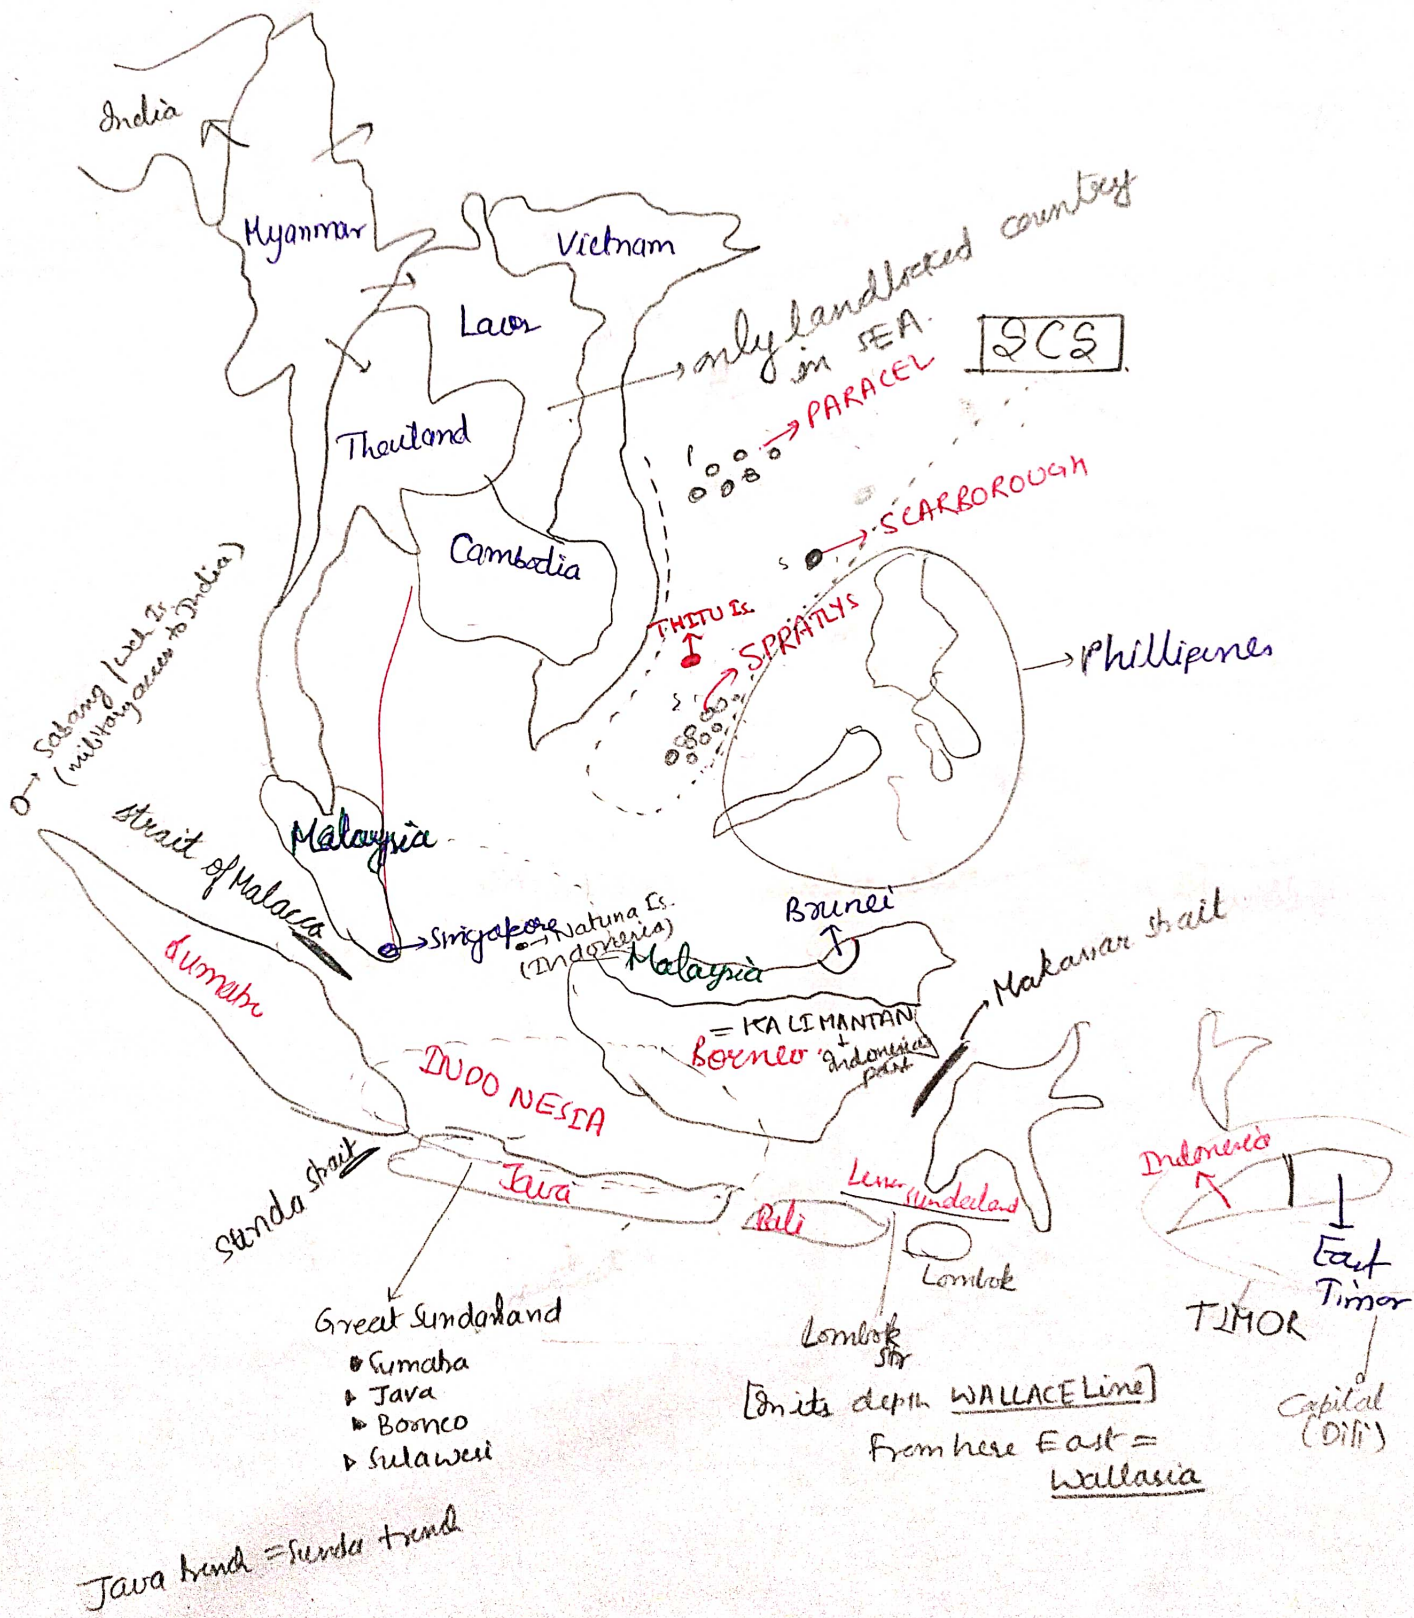 India
Myanmar
Vietnam
Laos
only landlocked country
in SEA.
SCS
PARACEL
Thailand
SCARBOROUGH
Cambodia
THITU Is.
SPRATLYS
S
S
Phillipines
Sabang
(military access to India)
Strait of Malacca
Malaysia
Singapore
Natuna Is.
(Indonesia)
Brunei
Malaysia
Makassar Strait
Sumatra
= KALIMANTAN
Borneo
Indonesia
part
INDONESIA
Indonesia
Sunda Strait
Java
Bali
Lesser Sundaland
Lombok
East
Timor
TIMOR
Great Sundaland
Sumatra
Java
Borneo
Sulawesi
Lombok
Str
[In its depth WALLACE Line]
From here East =
Wallasia
Capital
(Dili)
Java trench = Sunda trench